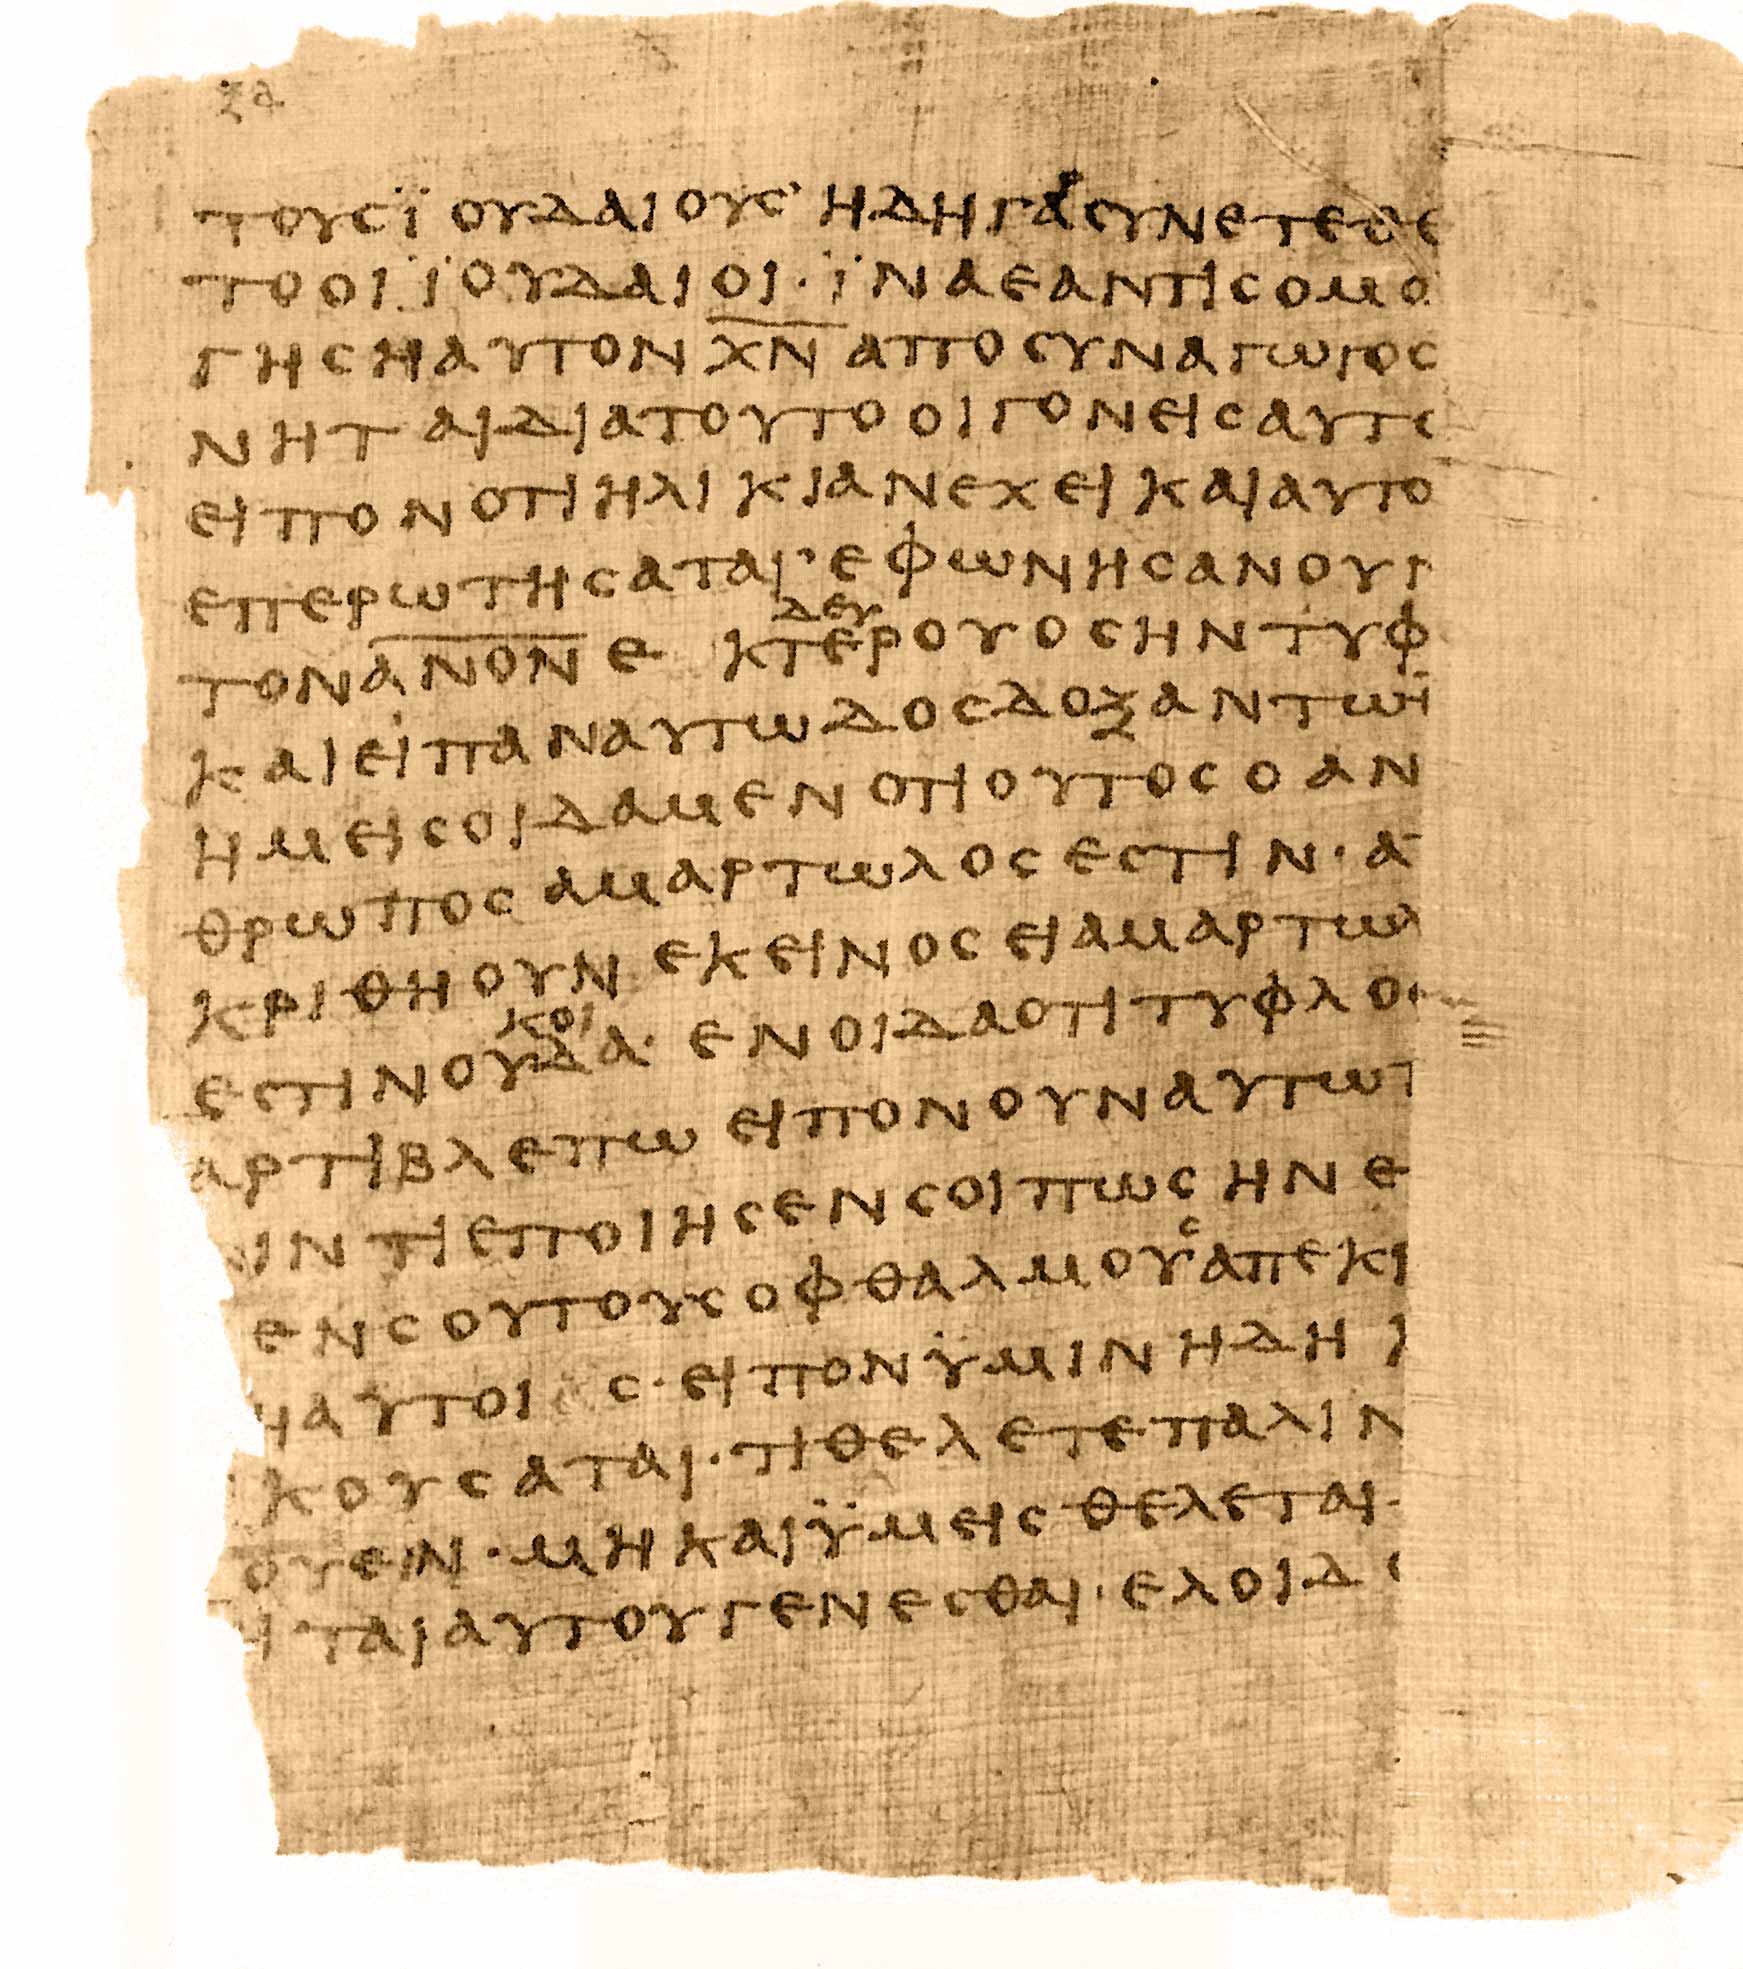 ξα
τουσϊουδαιους' ηδηγαρσυνετεθε
τοοιϊουδαιοι·ϊναεαντισομο
γησηαυτονχ̅ν̅αποσυναγωγος
νηταιδιατουτοοιγονεισαυτο
ειπονοτιηλικιανεχεικαιαυτο
επερωτησαται·εφωνησανουν
τονα̅ν̅ο̅ν̅ε κδευτερουοσηντυφ
καιειπαναυτωδοσδοξαντωϊ
ημεισοιδαμενοτιουτοσοαν
θρωποσαμαρτωλοσεστιν·απ
κριθηουνεκεινοσειαμαρτωλ
εστινουκοιδα·ενοιδαοτιτυφλος
αρτιβλεπωειπονουναυτωτ
ιντιεποιησενσοιπωσηνε
ενσουτουσοφθαλμουσαπεκρ
ηαυτοι ς·ειπονϋμινηδη
κουσαται·τιθελετεπαλιν
ουειν·μηκαιϋμεισθελεται·
ηταιαυτουγενεσθαι·ελοιδο